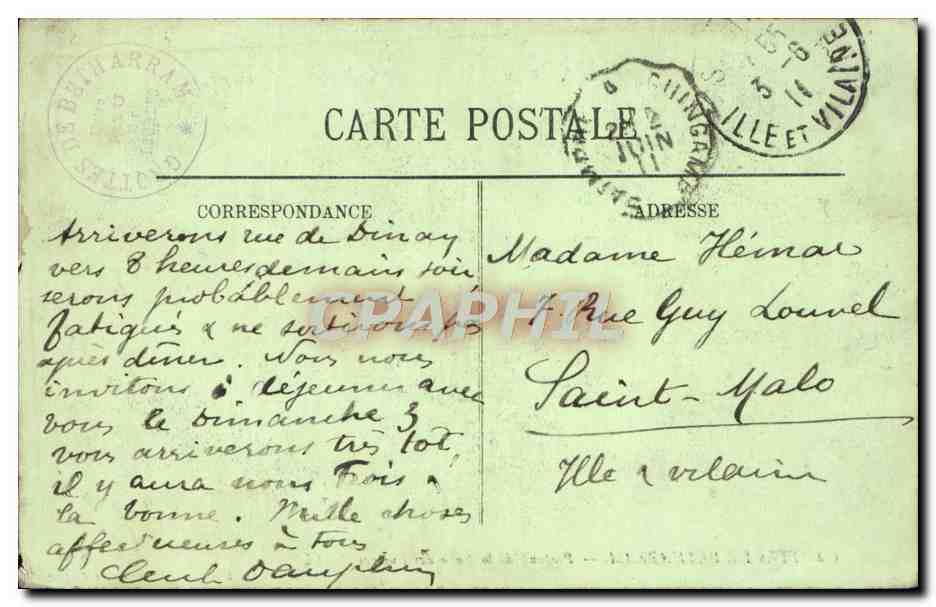 GROTTES DE BETHARRAM
CARTE POSTALE
GUINGAMP
JUIN
11
3 - 6
11
ILLE ET VILAINE
CORRESPONDANCE
ADRESSE
Arriverons rue de Dinay
vers 8 heures demain soir
serons probablement
fatigués & ne sortirons pas
après dîner. Nous nous
invitons à déjeuner avec
vous le Dimanche 3
vous arriverons très tôt,
il y aura nous Trois &
la bonne. Mille choses
affectueuses à tous
Madame Hémar
7. Rue Guy Louvel
Saint-Malo
Ille & vilaine
CPAPHIL